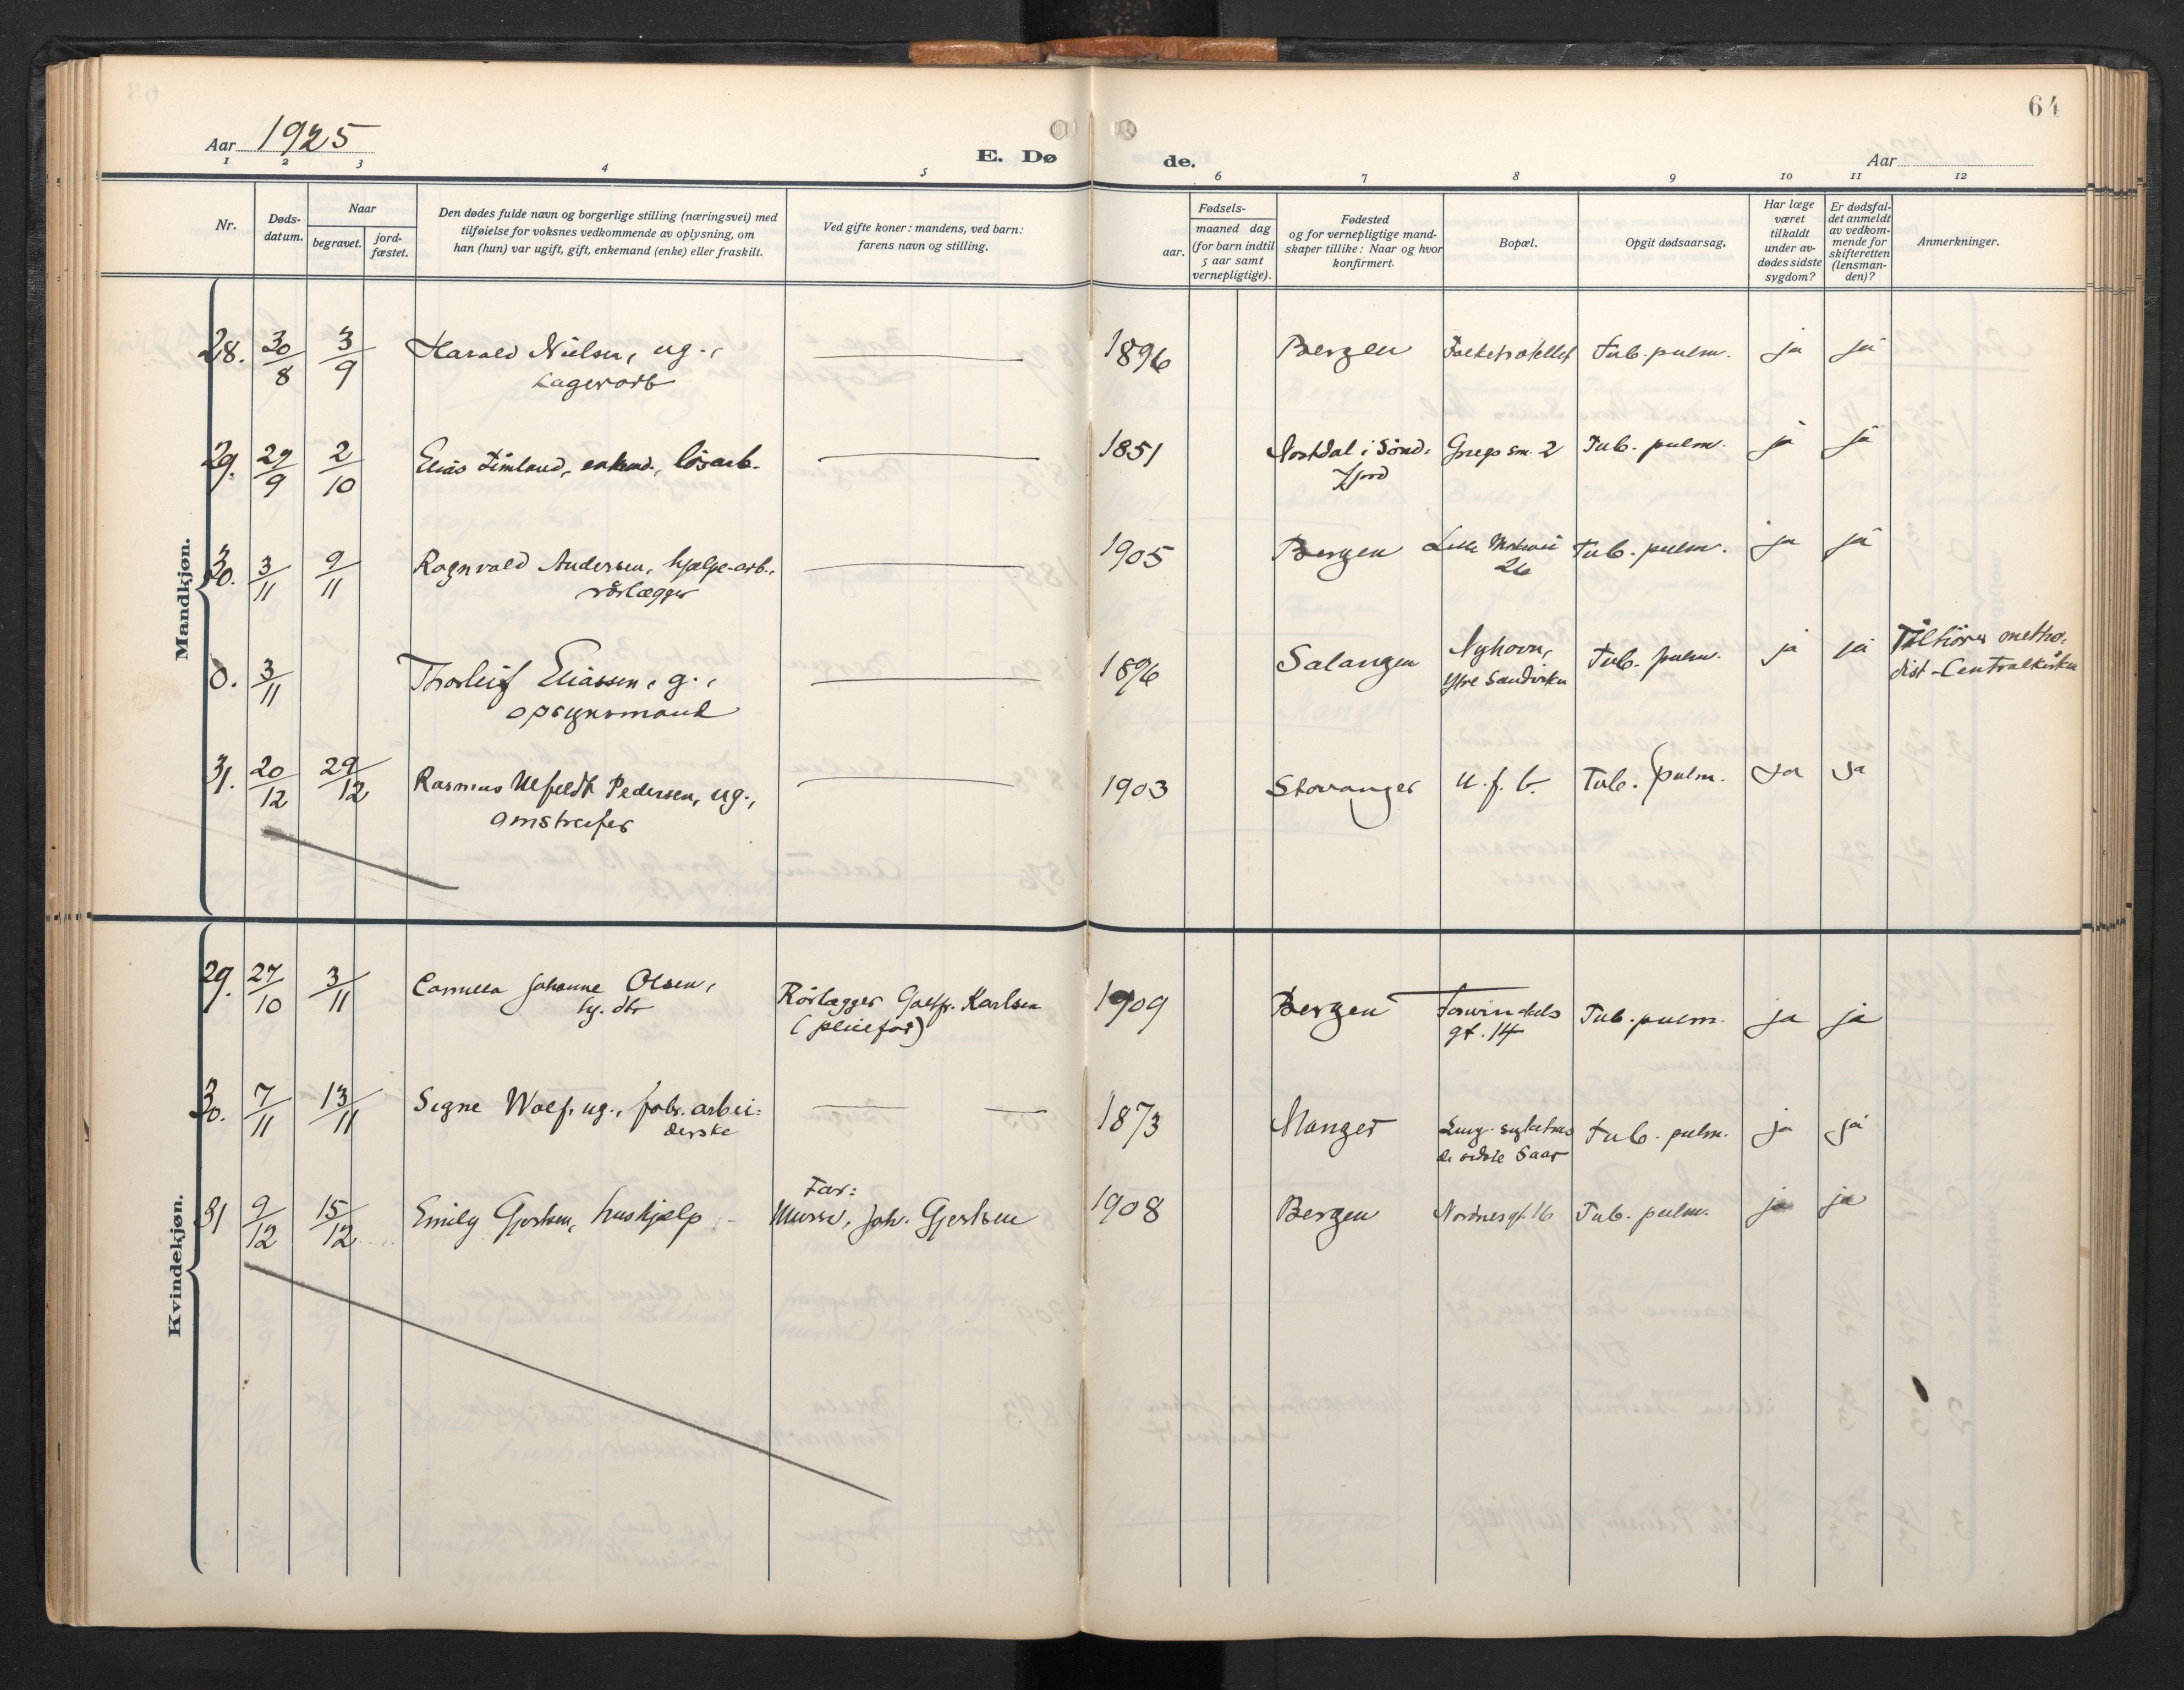 64
Aar 1925
E. Dø
de.
Aar
1 2 3 4 5 6 7 8 9 10 11 12
Nr.
Døds-
datum.
Naar
begravet.
jord-
fæstet.
Den dødes fulde navn og borgerlige stilling (næringsvei) med
tilføielse for voksnes vedkommende av oplysning, om
han (hun) var ugift, gift, enkemand (enke) eller fraskilt.
Ved gifte koner: mandens, ved barn:
farens navn og stilling.
Fødsels-
aar.
maaned dag
(for barn indtil
5 aar samt
vernepligtige).
Fødested
og for vernepligtige mand-
skaper tillike: Naar og hvor
konfirmert.
Bopæl.
Opgit dødsaarsag.
Har læge
været
tilkaldt
under av-
dødes sidste
sygdom?
Er dødsfal-
det anmeldt
av vedkom-
mende for
skifteretten
(lensman-
den)?
Anmerkninger.
Mandkjøn.
28. 30/8 3/9 Harald Nielsen, ug., 1896 Bergen Folkehotellet Tub. pulm. ja ja
Lagerarb
29. 29/9 2/10 Elias Timland, enkmd., løsarb. 1851 i Sönd- sm. 2 Tub. pulm. ja ja
fjord
30. 3/11 9/11 Ragnvald Andersen, hjælpe-arb., 1905 Bergen Lille 26 Tub. pulm. ja ja
rörlægger
0. 3/11 Thorleif Eliassen, g., 1896 Salangen Nyhavn, Tub. pulm. ja ja Tilhörer metho-
opsynsmand Ytre Sandviken dist-Centralkirken
31. 20/12 29/12 Rasmus Ulfeldt Pedersen, ug., 1903 Stavanger u. f. b. Tub. pulm. ja ja
Kvindekjøn.
29. 27/10 3/11 Johanne Olsen, Rörlægger Karlsen 1909 Bergen Tub. pulm. ja ja
(pleiefar) gt. 14
30. 7/11 13/11 Signe Wolf, ug., fabr. arbei- 1873 Manger Tub. pulm. ja ja
derske
31 9/12 15/12 Emily Gjertsen, huskjælp Far: 1908 Bergen Nordnesgt. 16 Tub. pulm. ja ja
Murer, Joh. Gjertsen